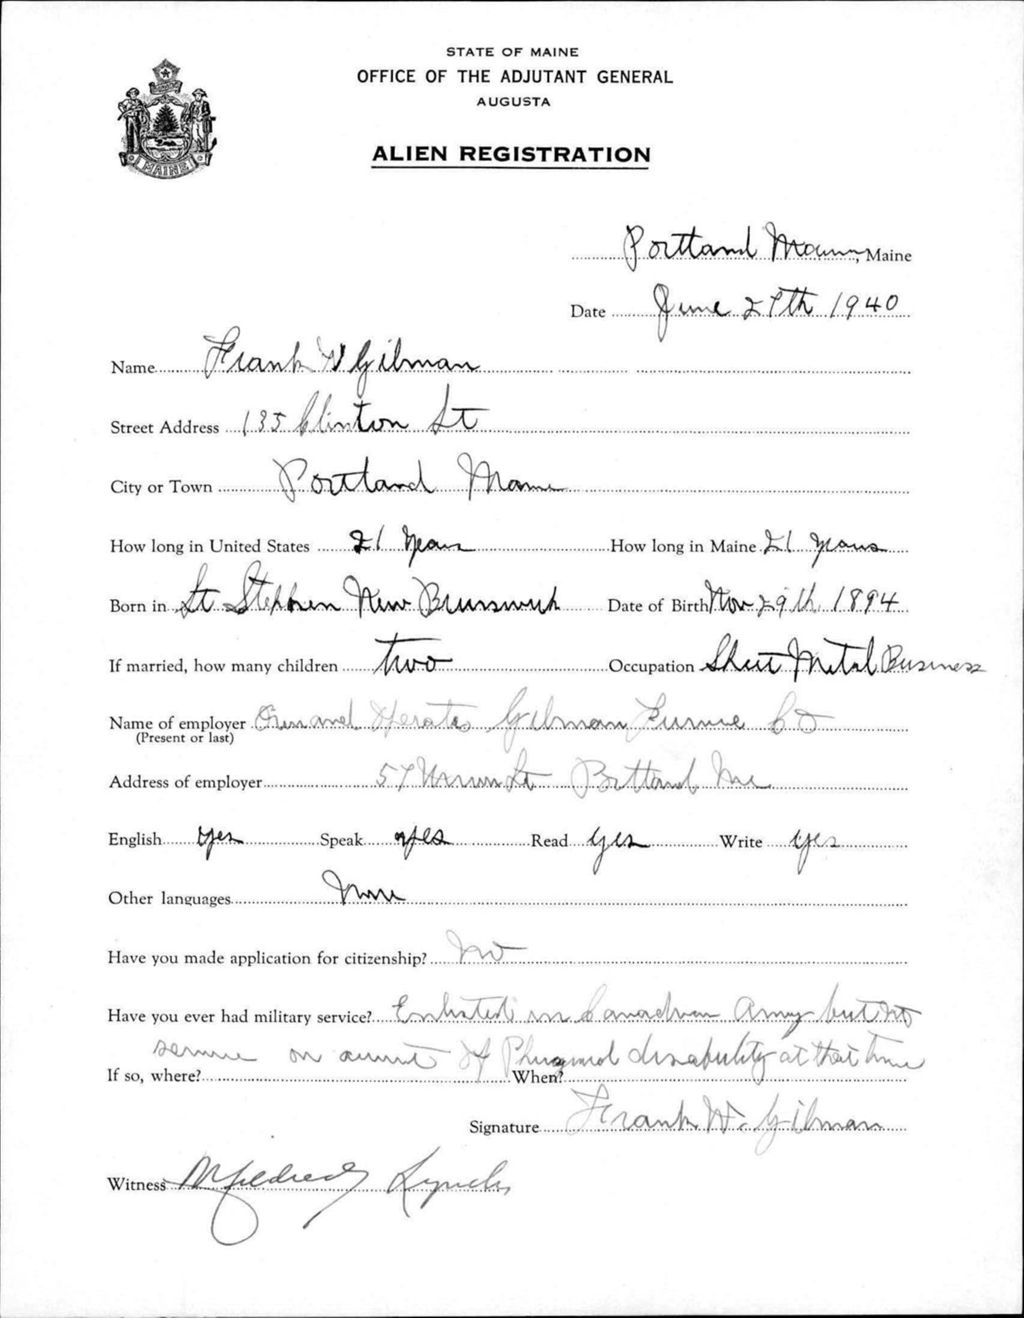 STATE OF MAINE
OFFICE OF THE ADJUTANT GENERAL
AUGUSTA
ALIEN REGISTRATION
MAINE
Portland Maine, Maine
Date June 27th 1940
Name Frank W Gilman
Street Address 135 Clinton St
City or Town Portland Maine
How long in United States 21 years How long in Maine 21 years
Born in St Stephen New Brunswick Date of Birth Nov 29th 1894
If married, how many children two Occupation Sheet Metal Business
Name of employer Own and Gilman Co
(Present or last)
Address of employer 57 Union St Portland Me
English yes Speak yes Read yes Write yes
Other languages None
Have you made application for citizenship? No
Have you ever had military service? Enlisted in Canadian Army but no
service on account of Physical disability at that time
If so, where? When?
Signature Frank W. Gilman
Witness Mildred Lynch